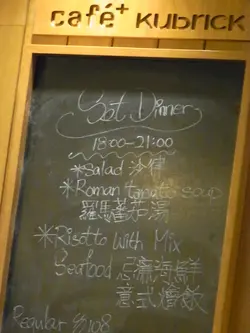 café+ KUBRICK
Set Dinner
18:00-21:00
*Salad 沙律
*Roman tomato soup
羅馬蕃茄湯
*Risotto With Mix
Seafood 海鮮
意式燴飯
Regular $108